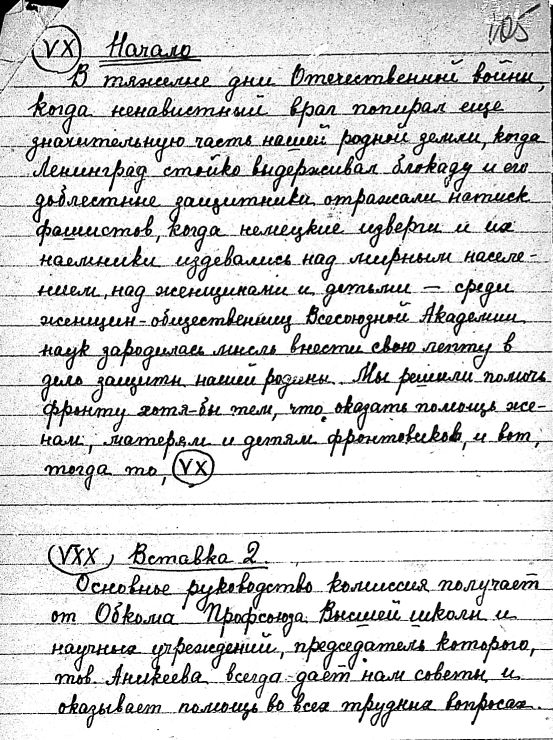 105
VX Начало
В тяжелые дни Отечественной войны,
когда ненавистный враг попирал еще
значительную часть нашей родной земли, когда
Ленинград стойко выдерживал блокаду и его
доблестные защитники отражали натиск
фашистов, когда немецкие изверги и их
наемники издевались над мирным населе-
нием, над женщинами и детьми — среди
женщин-общественниц Всесоюзной Академии
наук зародилась мысль внести свою лепту в
дело защиты нашей родины. Мы решили помочь
фронту хотя-бы тем, что оказать помощь же-
нам, матерям и детям фронтовиков, и вот,
тогда то, VX
VXX Вставка 2.
Основное руководство комиссия получает
от Обкома Профсоюза Высшей школы и
научных учреждений, председатель которого,
тов. Аникеева всегда дает нам советы и
оказывает помощь во всех трудных вопросах.